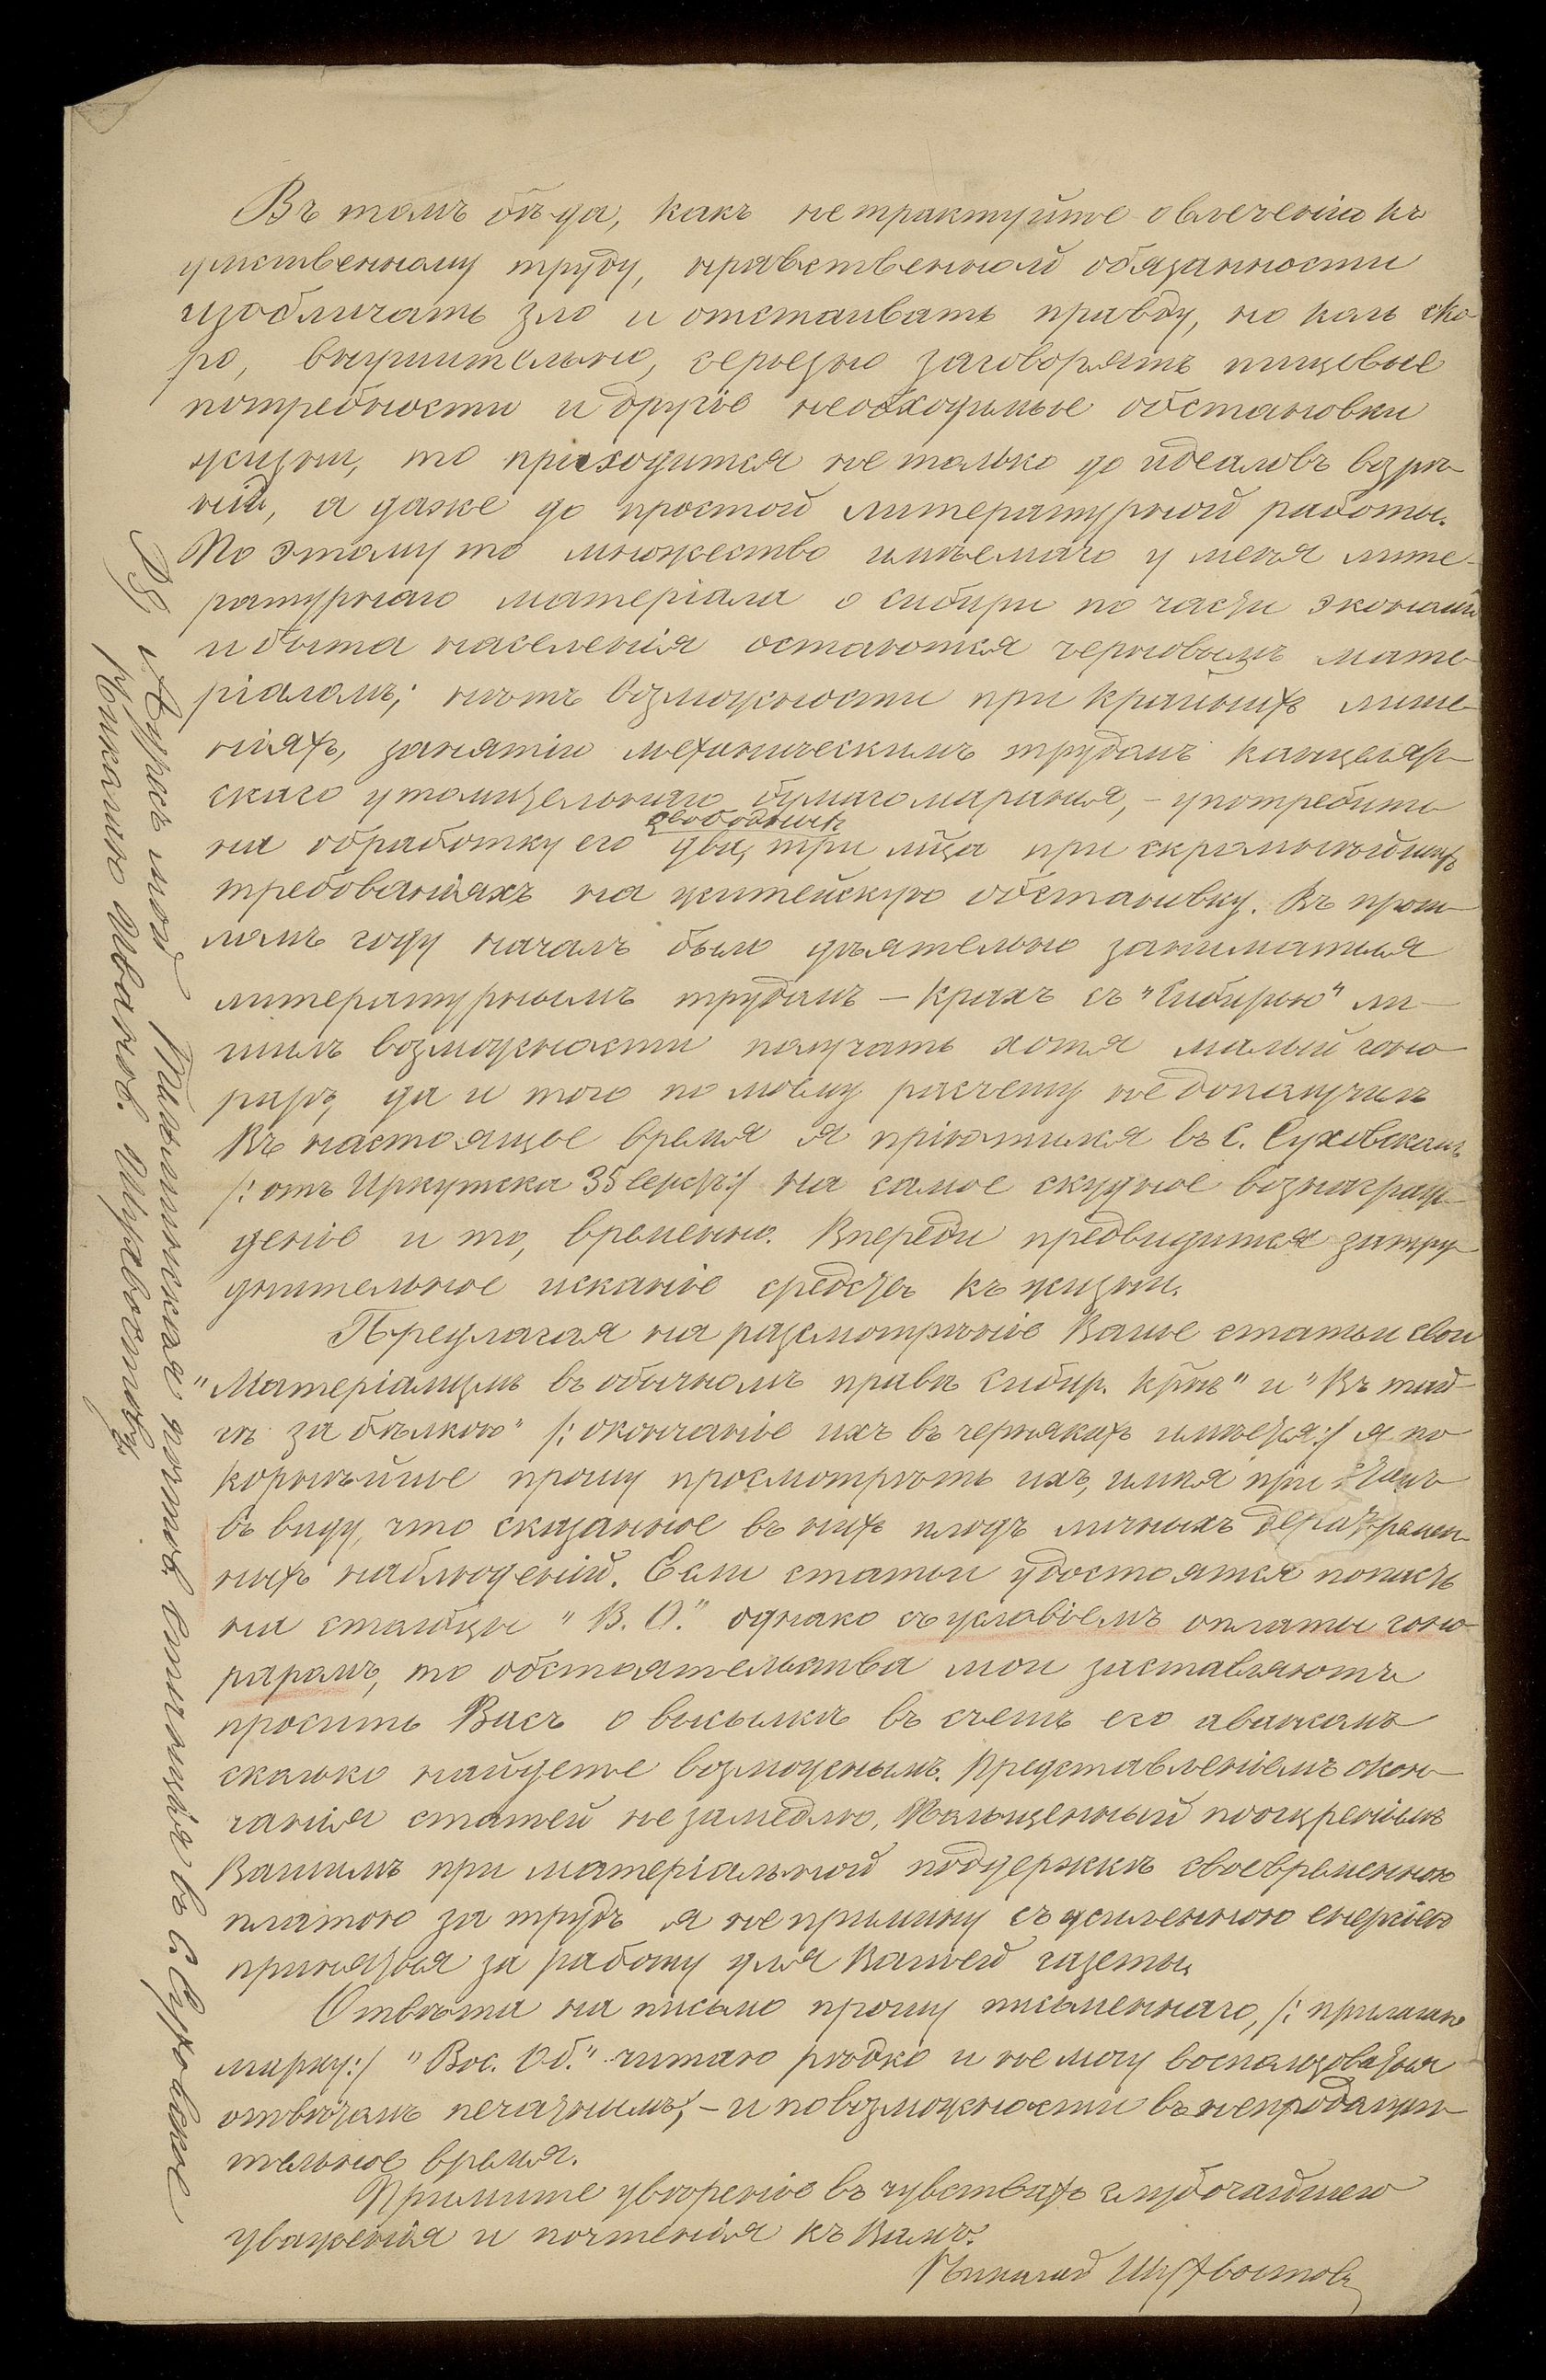 Въ томъ бѣда, какъ не трактуйте о влеченіи къ
умственному труду, нравственной обязанности
изобличать зло и отстаивать правду, но коль ско
ро, внушительно, серьезно заговорятъ пищевые
потребности и другіе необходимые обстановки
жизни, то приходится не только до идеаловъ воззрѣ
ній, а даже до простой литературной работы.
По этому то множество имѣемаго у меня лите-
ратурнаго матеріала о Сибири по части экономіи
и быта населенія остаются черновымъ мате
ріаломъ; нѣтъ возможности при крайнихъ лише
ніяхъ, занятіи механическимъ трудомъ канцеляр
скаго утомительнаго бумагомаранія, - употребить
свободныхъ
на обработку его два, три м-ца при скромнѣйшихъ
требованіяхъ на житейскую обстановку. Въ прош
ломъ году началъ было дѣятельно заниматься
литературнымъ трудомъ - крахъ съ "Сибирью" ли-
шилъ возможности получать хотя малый гоно
раръ, да и того по моему расчету не дополучилъ
Въ настоящее время я пріютился въ с. Суховскомъ
/: отъ Иркутска 35 верстъ :/ на самое скудное вознаграж
деніе и то, временно. Впереди предвидится затру
днительное исканіе средствъ къ жизни.
Предлагая на разсмотрѣніе Ваше статьи свои
"Матеріализмъ въ обычномъ правѣ Сибир. Кр-нъ" и "Въ тай-
гѣ за бѣлкою" /: окончаніе ихъ въ чернякахъ имѣется :/ я по
корнѣйше прошу просмотрѣть ихъ, имѣя при этомъ
въ виду, что сказанное въ нихъ плодъ личныхъ
ныхъ наблюденій. Если статьи удостоятся попасть
на столбцы "В. О." однако съ условіемъ оплаты гоно-
раромъ, то обстоятельства мои заставляютъ
просить Васъ о высылкѣ въ счетъ его авансомъ
сколько найдете возможнымъ. Представленіемъ окон
чанія статей не замедлю. Польщенный поощреніемъ
Вашимъ при матеріальной поддержкѣ своевременною
платою за трудъ я не примину съ усиленною енергіею
приняться за работу для Вашей газеты.
Отвѣта на письмо прошу письменнаго, /: прилагаю
марку :/ "Вос. Об." читаю рѣдко и не могу воспользоваться
отвѣтомъ печатнымъ; - и по возможности въ непродолжи
тельное время.
Примите увѣреніе въ чувствахъ глубочайшего
уваженія и почтенія къ Вамъ.
Николай Шухвостовъ
PS Адресъ мой Тельминская почтов. станція въ с. Суховское
Николаю Иванов. Шухвостову.